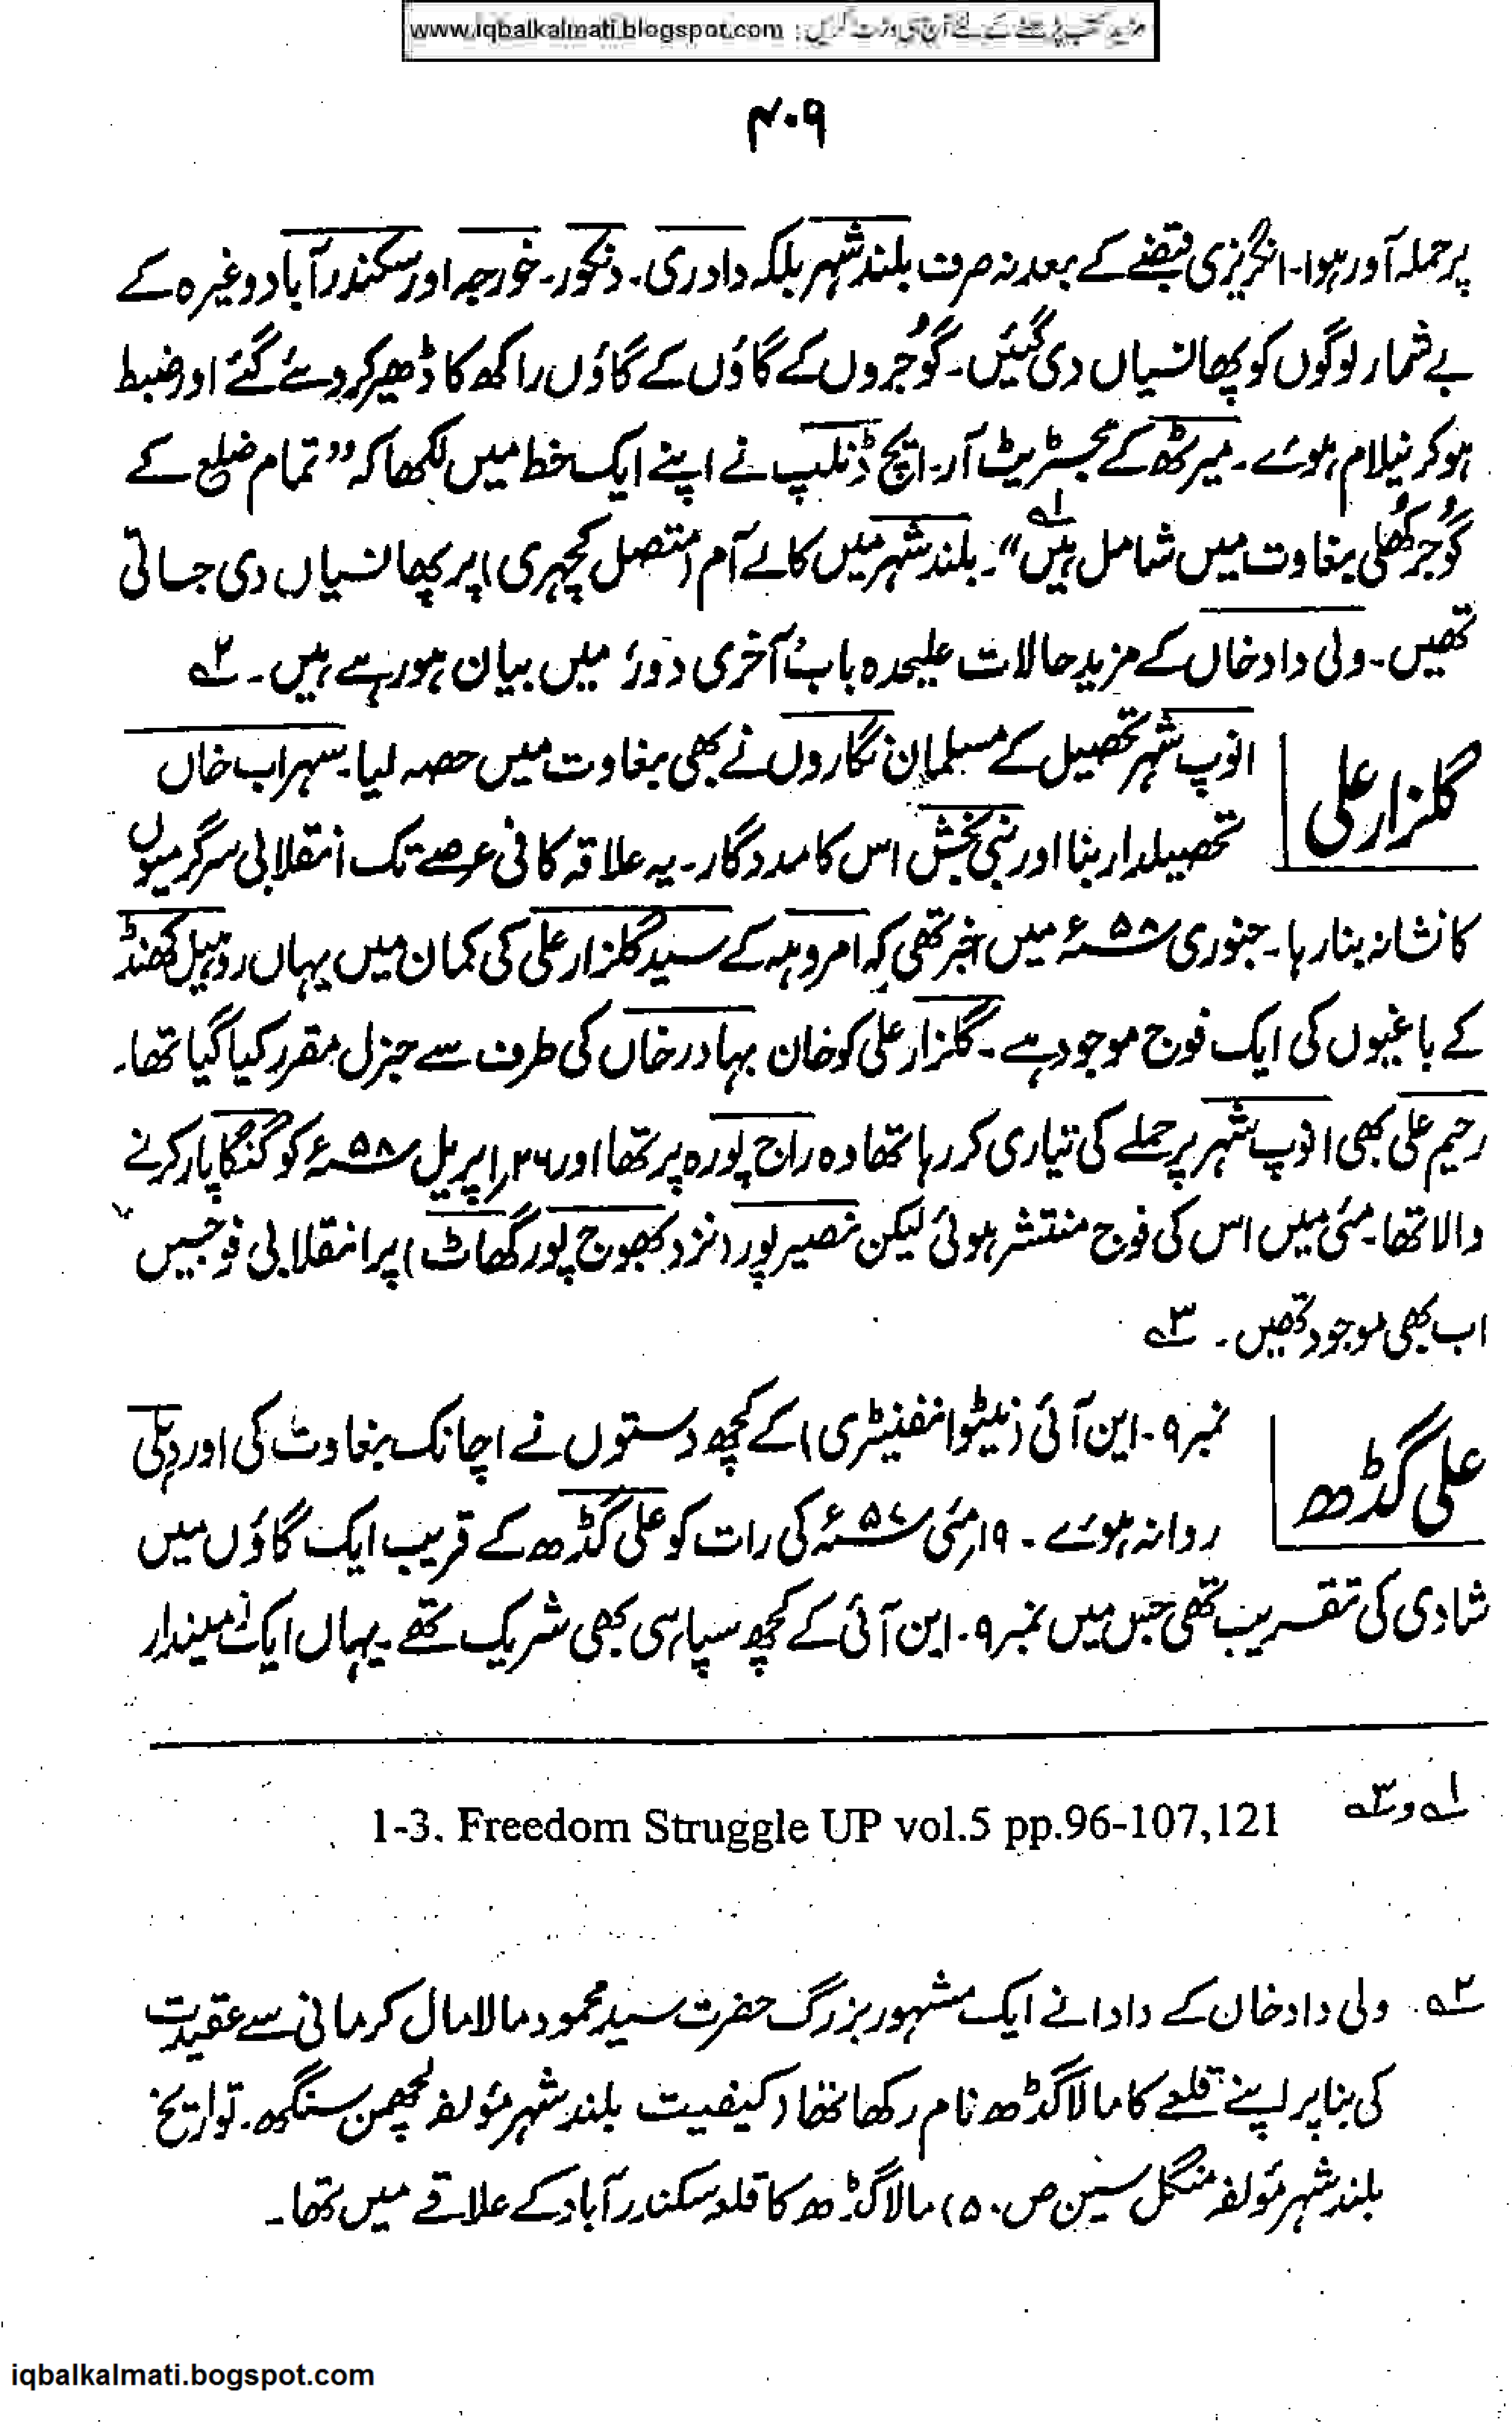 مزید کتب پڑھنے کے لئے آج ہی وزٹ کریں : www.iqbalkalmati.blogspot.com
۴۰۹
پر حملہ آور ہوا۔ انگریزی قبضے کے بعد نہ صرف بلند شہر بلکہ دادری۔ دنکور۔ خورجہ اور سکندرآباد وغیرہ کے
بے شمار لوگوں کو پھانسیاں دی گئیں۔ گُوجروں کے گاؤں کے گاؤں راکھ کا ڈھیر کر دئے گئے اور ضبط
ہو کر نیلام ہوئے۔ میرٹھ کے مجسٹریٹ آر۔ ایچ ڈنلپ نے اپنے ایک خط میں لکھا کہ ”تمام ضلع کے
گُوجر کھُلی بغاوت میں شامل ہیں“۔ ۱؎ بلند شہر میں کالے آم (متصل کچہری) پر پھانسیاں دی جاتی
تھیں۔ ولی داد خاں کے مزید حالات علیحدہ باب ’آخری دور‘ میں بیان ہو رہے ہیں۔ ۲؎
گلزار علی
انوپ شہر تحصیل کے مسلمان نگاروں نے بھی بغاوت میں حصہ لیا۔ سہراب خاں
تحصیلدار بنا اور نبی بخش اس کا مددگار۔ یہ علاقہ کافی عرصے تک انقلابی سرگرمیوں
کا نشانہ بنا رہا۔ جنوری ۵۸ء میں خبر تھی کہ امروہہ کے سید گلزار علی کی کمان میں یہاں روہیل کھنڈ
کے باغیوں کی ایک فوج موجود ہے۔ گلزار علی کو خان بہادر خاں کی طرف سے جنرل مقرر کیا گیا تھا۔
رحیم علی بھی انوپ شہر پر حملے کی تیاری کر رہا تھا وہ راج پورہ پر تھا اور ۲۶ اپریل ۵۸ء کو گنگا پار کرنے
والا تھا۔ مئی میں اس کی فوج منتشر ہوئی لیکن نصیر پور (نزد بھوج پور گھاٹ) پر انقلابی فوجیں
اب بھی موجود تھیں۔ ۳؎
علی گڈھ
نمبر ۹۔ این آئی (نیٹو انفینٹری) کے کچھ دستوں نے اچانک بغاوت کی اور دہلی
روانہ ہوئے۔ ۱۹ مئی ۵۷ء کی رات کو علی گڈھ کے قریب ایک گاؤں میں
شادی کی تقریب تھی جس میں نمبر ۹۔ این آئی کے کچھ سپاہی بھی شریک تھے۔ یہاں ایک زمیندار
۱؎ و ۳؎ 1-3. Freedom Struggle UP vol.5 pp.96-107,121
۲؎ ولی داد خان کے دادا نے ایک مشہور بزرگ حضرت سید محمود مالامال کرمانی سے عقیدت
کی بنا پر اپنے قلعے کا مالا گڈھ نام رکھا تھا (کیفیت بلند شہر مؤلفہ لچھمن سنگھ۔ تواریخ
بلند شہر مؤلفہ منگل سین ص ۵۰) مالا گڈھ کا قلعہ سکندرآباد کے علاقے میں تھا۔
iqbalkalmati.bogspot.com